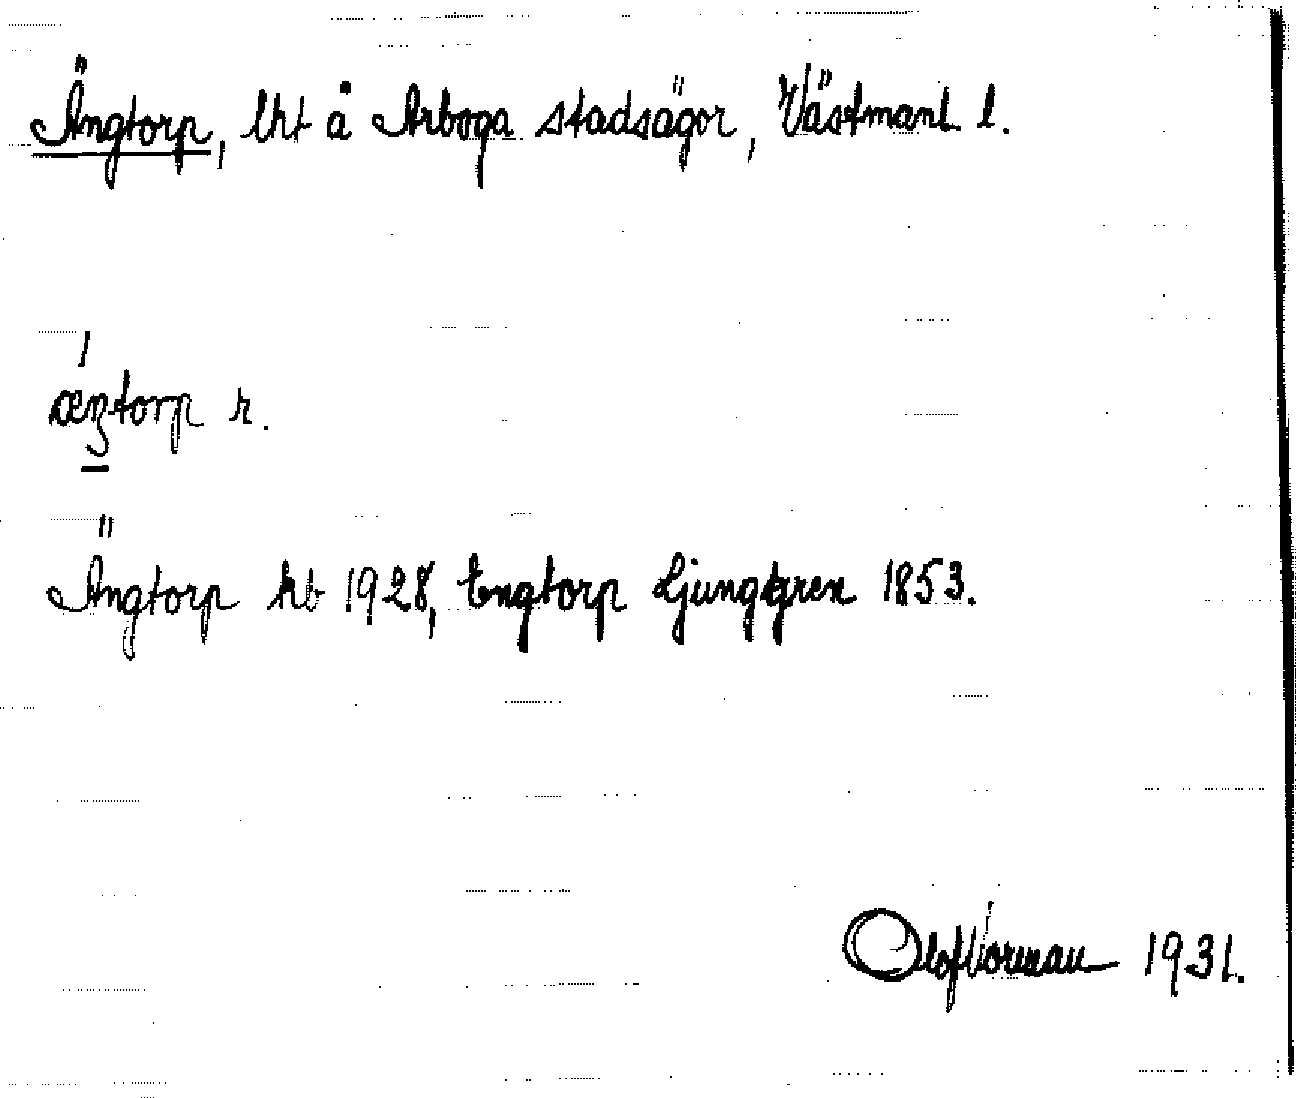 Ängtorp, lht å Arboga stadsägor, Västmanl. l.
æŋtorp r.
Ängtorp kb 1928, Engtorp Ljunggren 1853.
Olof 1931.